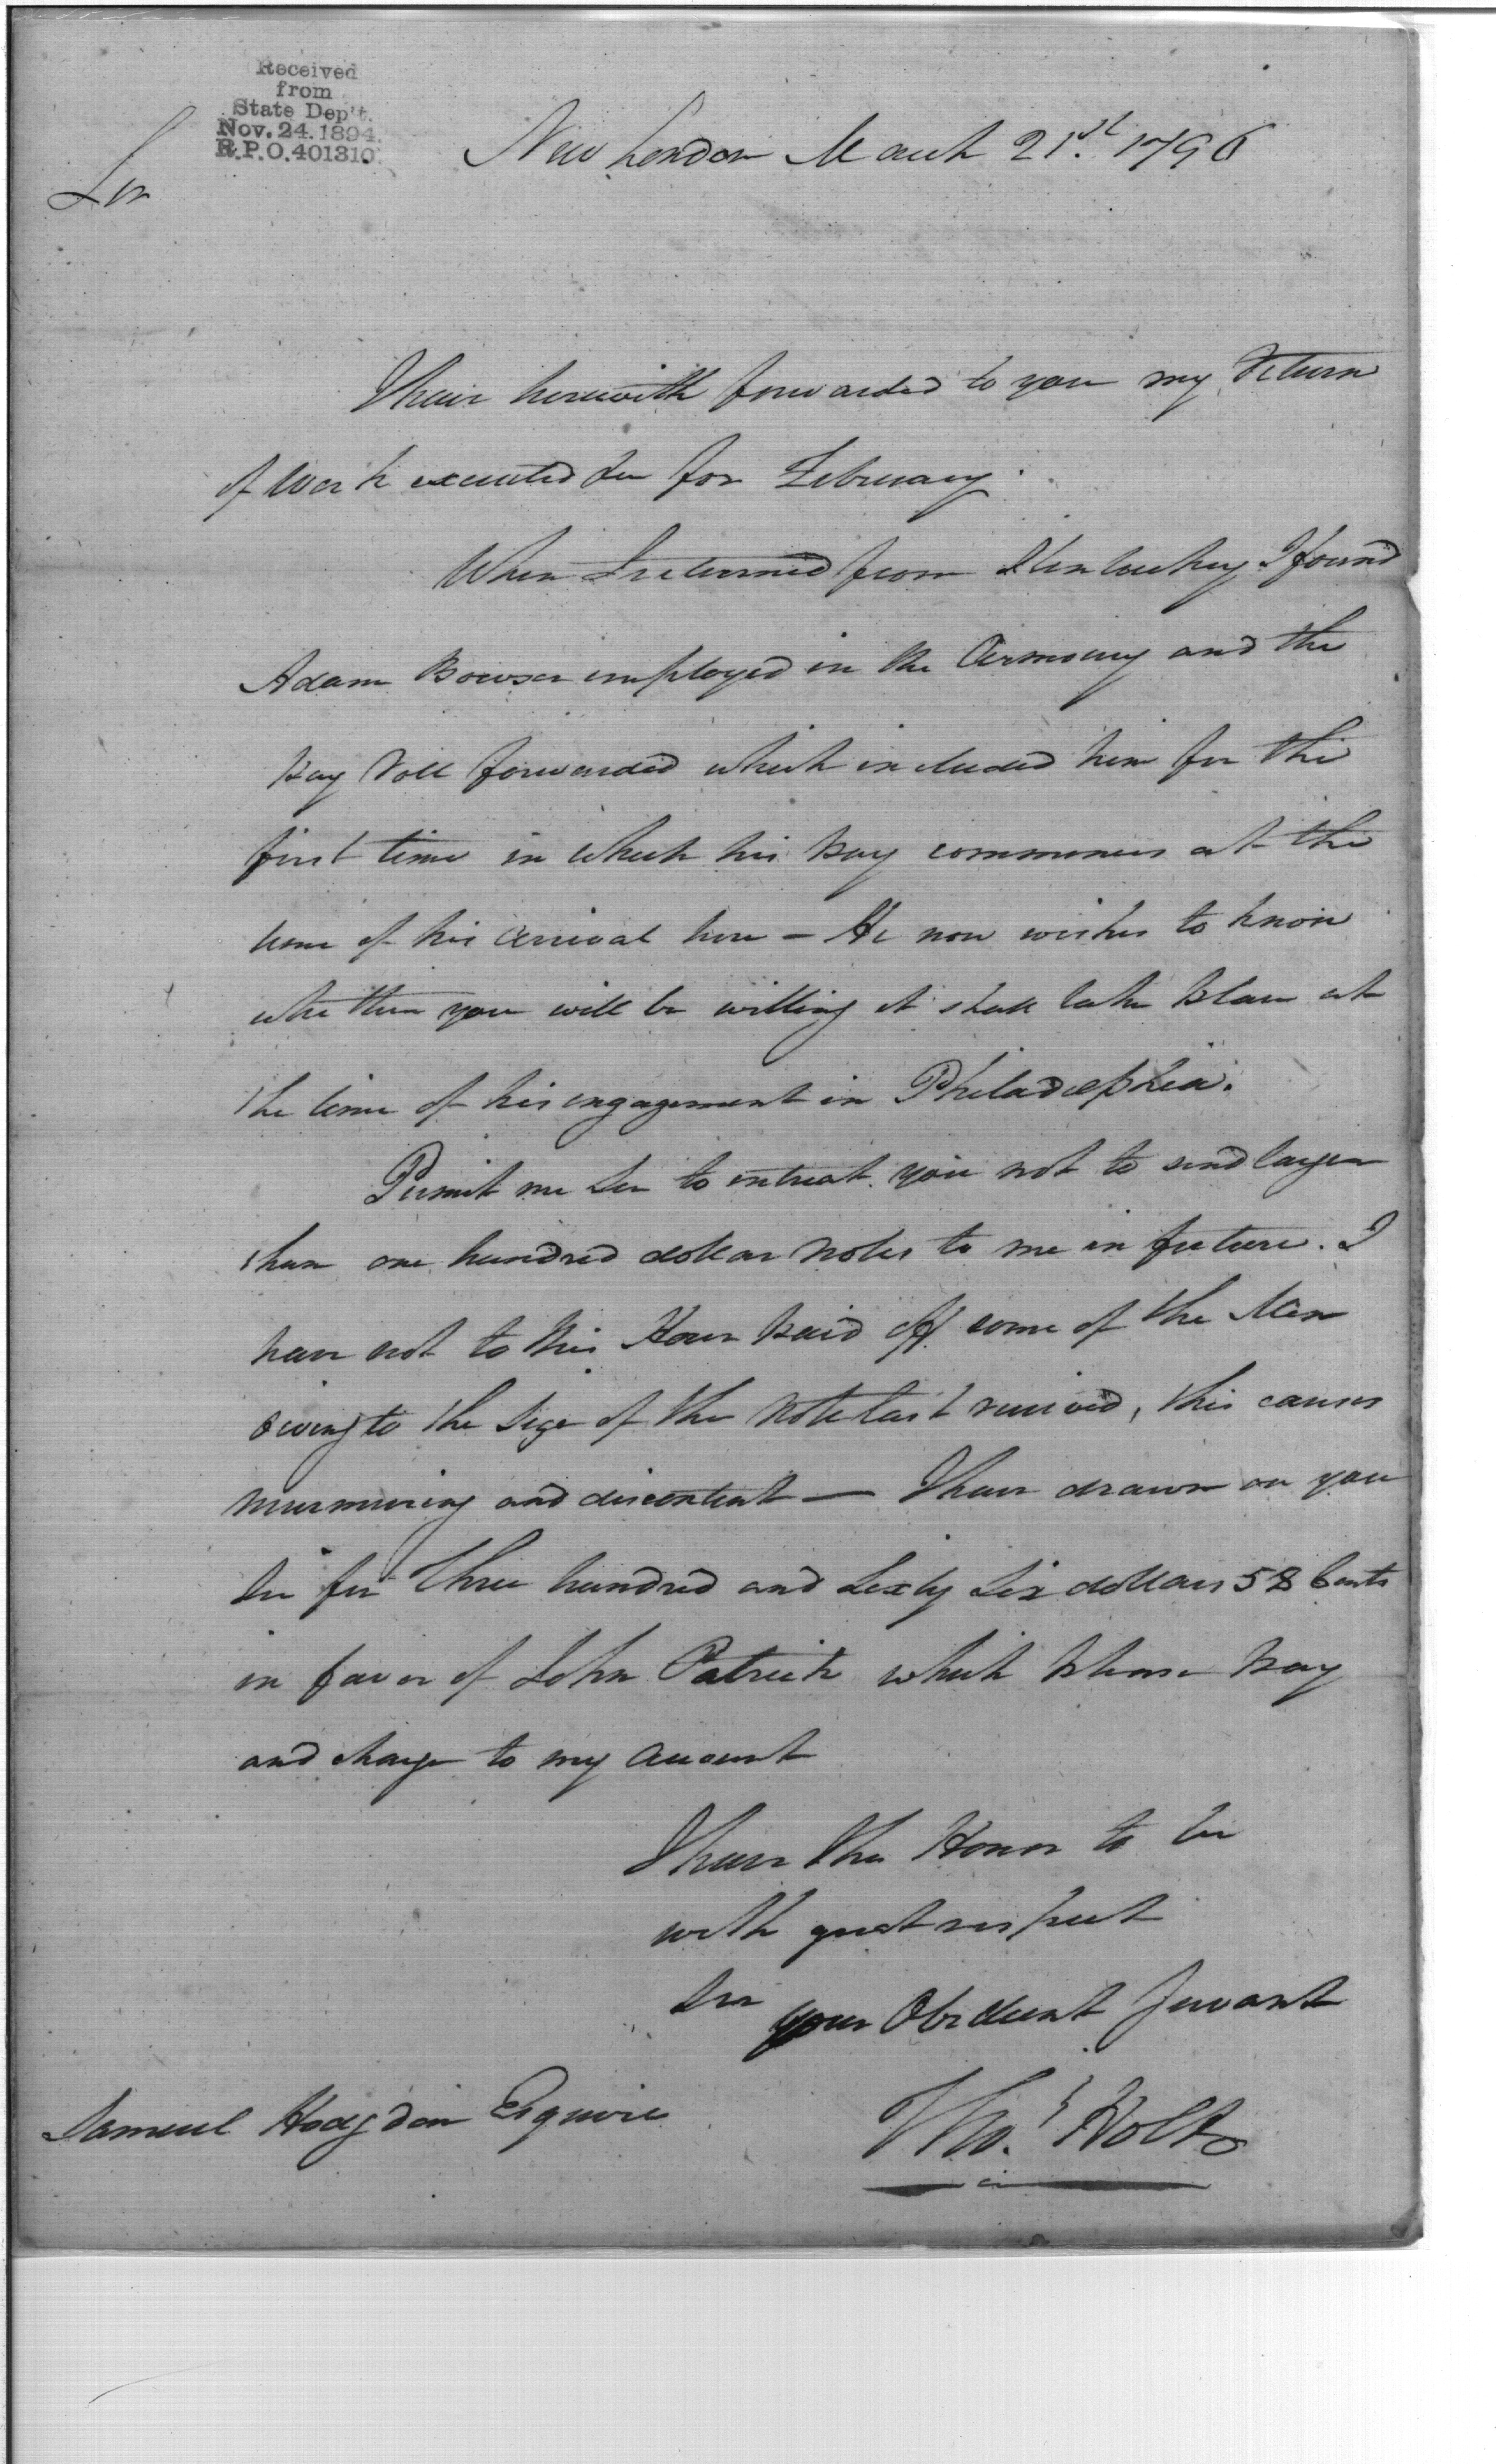 Received
from
State Dep't.
Nov. 24. 1894.
R.P.O. 401310.
New London March 21st. 1796
Sir
I have herewith forwarded to you my Return
of Work executed &c for February.
When I returned from Kentuckey I found
Adam Bowser employed in the Armoury and the
Pay Roll forwarded which included him for the
first time in which his Pay commences at the
time of his Arrival here – He now wishes to know
whether you will be willing it shall take Place at
the time of his engagement in Philadelphia.
Permit me Sir to entreat you not to send larger
than one hundred dollar Notes to me in future. I
have not to this Hour Paid off some of the Men
owing to the Size of the Note last received, this causes
murmuring and discontent — I have drawn on you
Sir for Three hundred and Sixty Six dollars 58 Cents
in favor of John Patrick which Please Pay
and charge to my Account
I have the Honor to be
with great respect
Sir
your Obedient Servant
Thos. Holt
Samuel Hodgdon Esquire